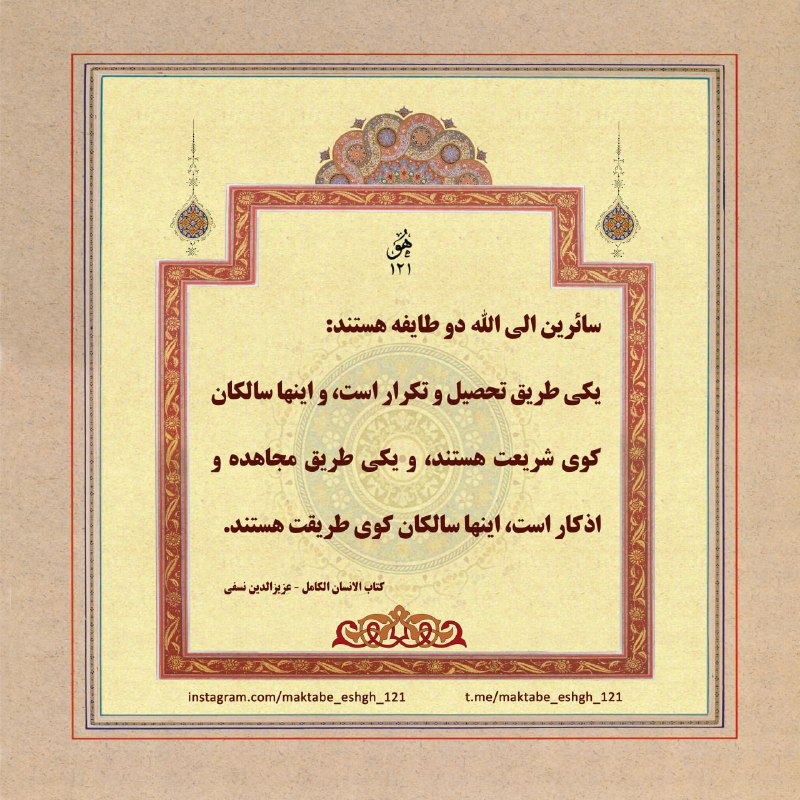 هُوَ
۱۲۱
سائرین الی الله دو طایفه هستند:
یکی طریق تحصیل و تکرار است، و اینها سالکان
کوی شریعت هستند، و یکی طریق مجاهده و
اذکار است، اینها سالکان کوی طریقت هستند.
کتاب الانسان الکامل - عزیزالدین نسفی
instagram.com/maktabe_eshgh_121
t.me/maktabe_eshgh_121